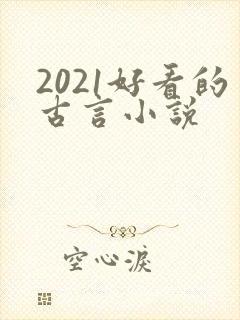 2021好看的
古言小说
空心淚